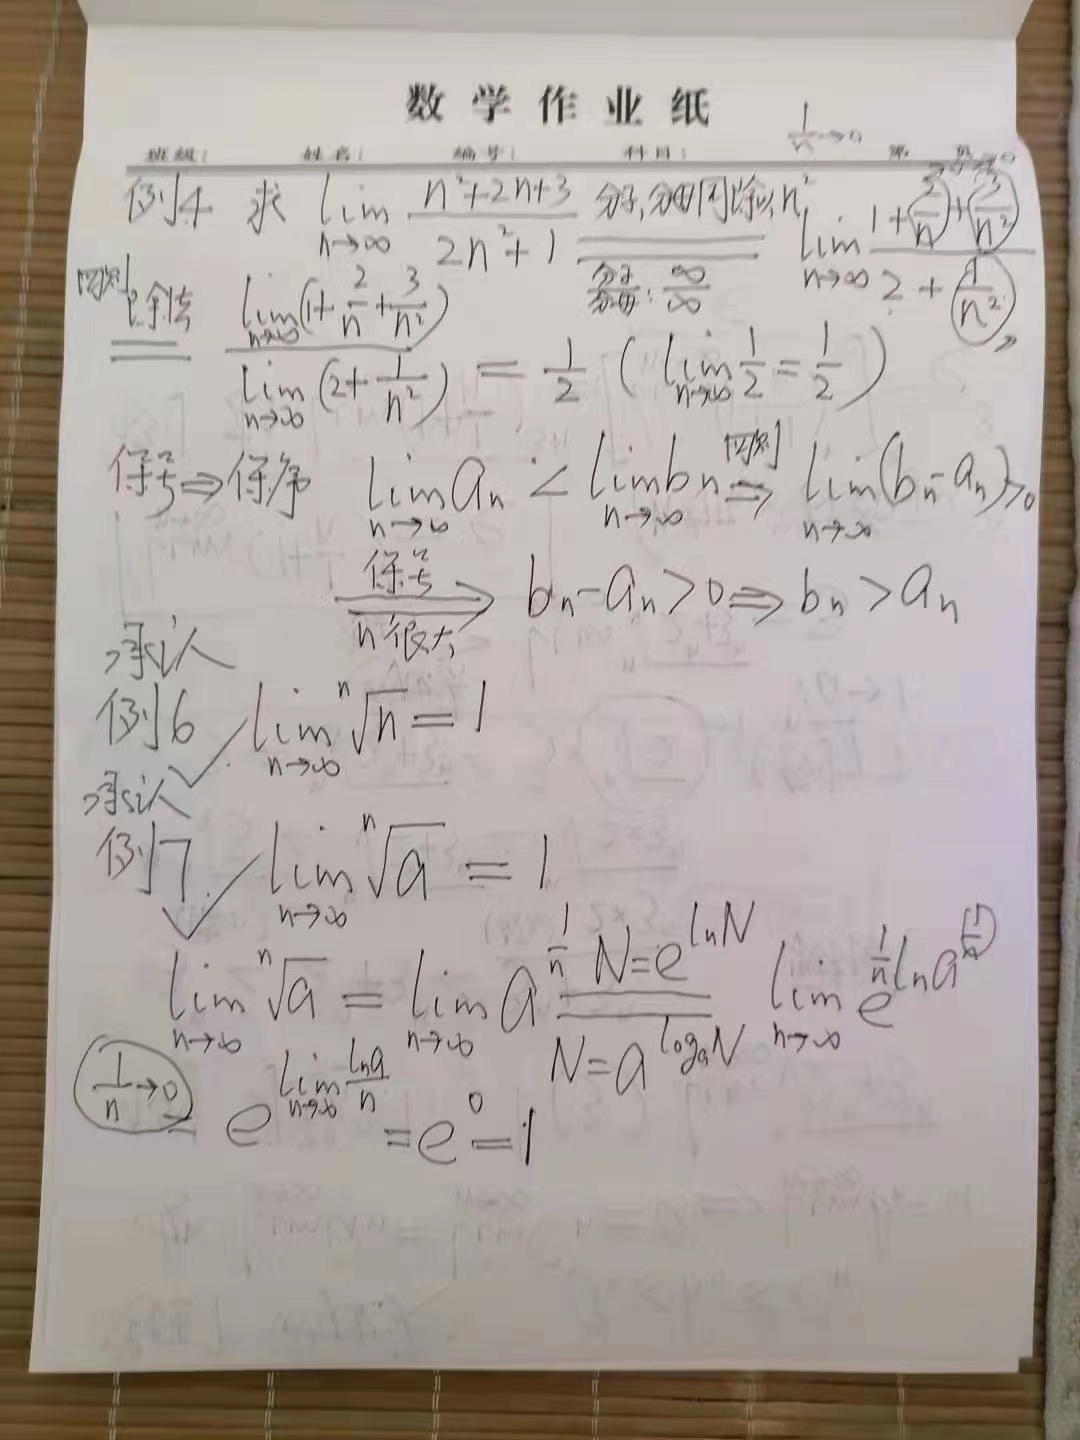 数学作业纸
1/n→0
班级: 姓名: 编号: 科目: 第 页
例4 求 lim n→∞ (n²+2n+3)/(2n²+1) 分子,分母同除以n² lim n→∞ (1+2/n+3/n²)/(2+1/n²)
分子/分母: ∞/∞
四则 除法 lim n→∞ (1+2/n+3/n²) / lim n→∞ (2+1/n²) = 1/2 (lim n→∞ 1/2 = 1/2)
保号⇒保序 lim n→∞ aₙ < lim n→∞ bₙ 四则⇒ lim n→∞ (bₙ-aₙ)>0
保号 n很大 → bₙ-aₙ>0⇒bₙ>aₙ
承认
例6 lim n→∞ ⁿ√n = 1
承认
例7 lim n→∞ ⁿ√a = 1
lim n→∞ ⁿ√a = lim n→∞ a^(1/n) N=e^(lnN) N=a^(logₐN) lim n→∞ e^(1/n lna^(1/n))
1/n→0 = e^(lim n→∞ lna/n) = e⁰ = 1